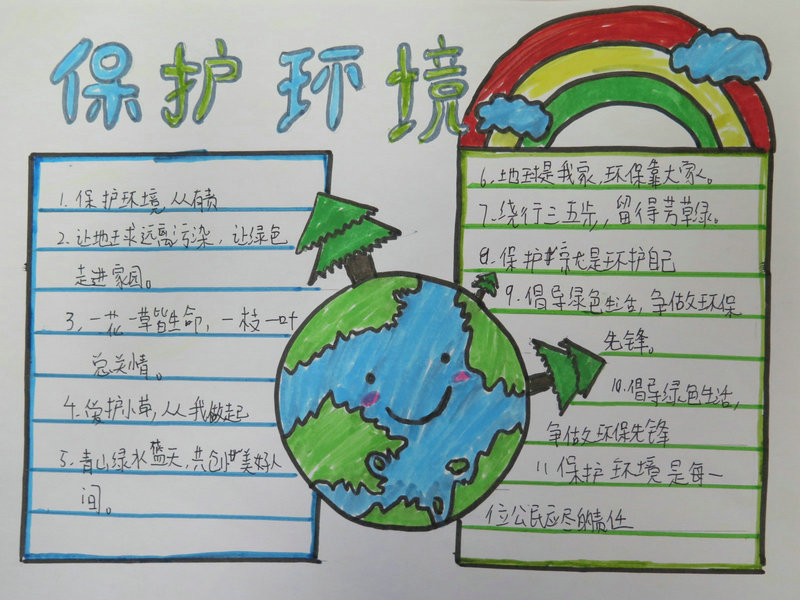 保护环境
1.保护环境,人人有责
2.让地球远离污染,让绿色
走进家园。
3,一花一草皆生命,一枝一叶
总关情。
4.爱护小草,从我做起
5.青山绿水蓝天,共创世美好人
间。
6.地球是我家,环保靠大家。
7.绕行三五步,留得芳草绿。
8.保护就是环护自己
9.倡导绿色生活,争做环保
先锋。
10.倡导绿色生活,
争做环保先锋
11保护环境是每一
位公民应尽的责任